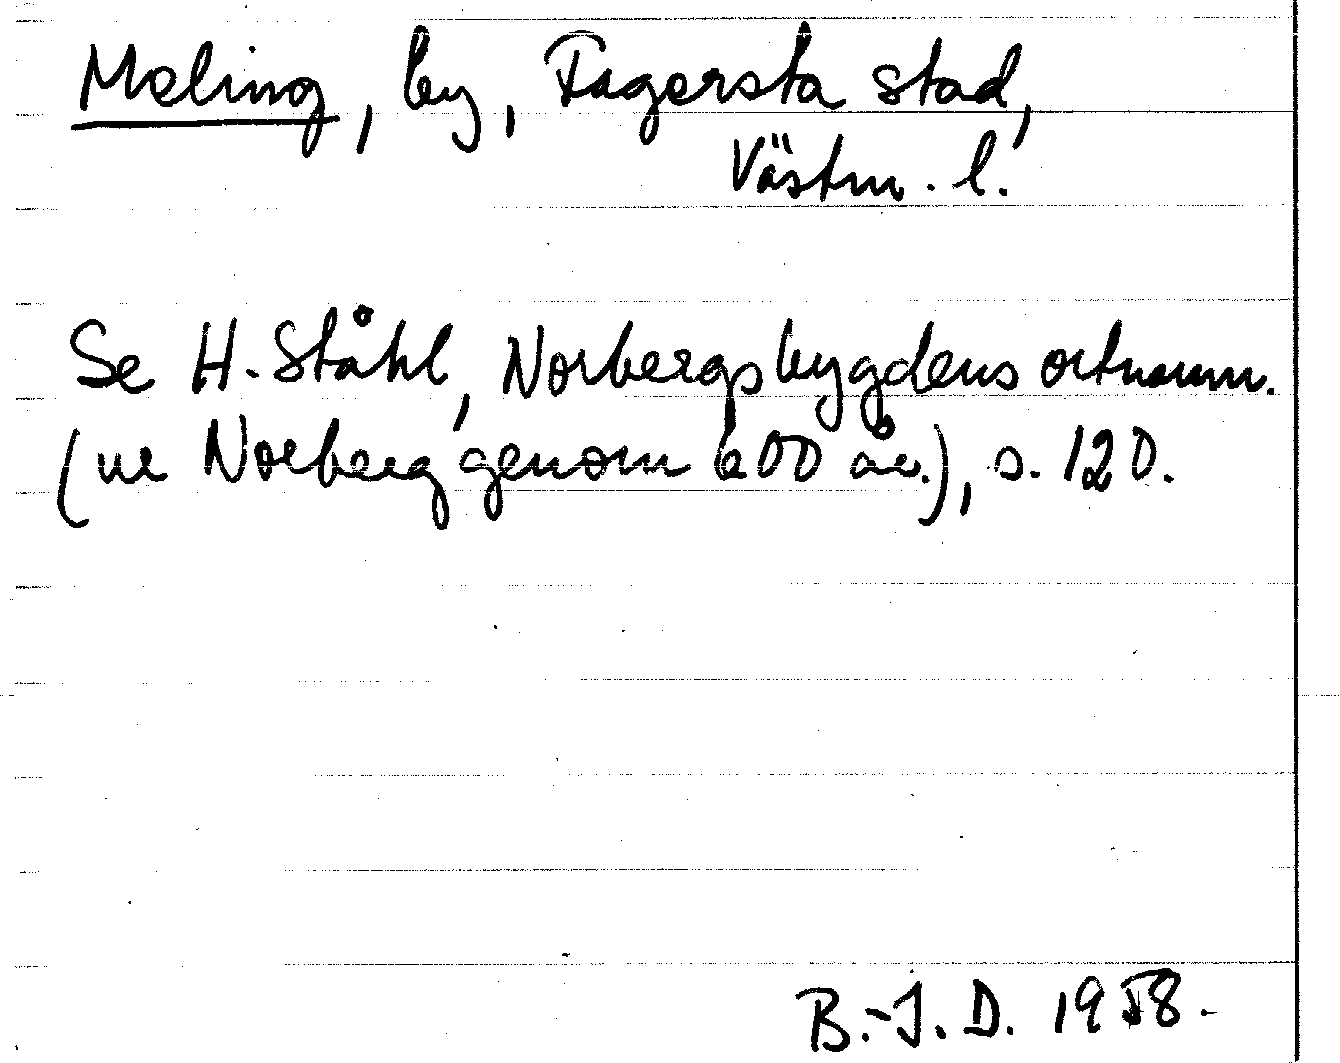 Meling, by, Fagersta stad,
Västm. l.
Se H. Ståhl, Norbergsbygdens ortnamn.
(ur Norberg genom 600 år.), s. 120.
B.-J. D. 1958.